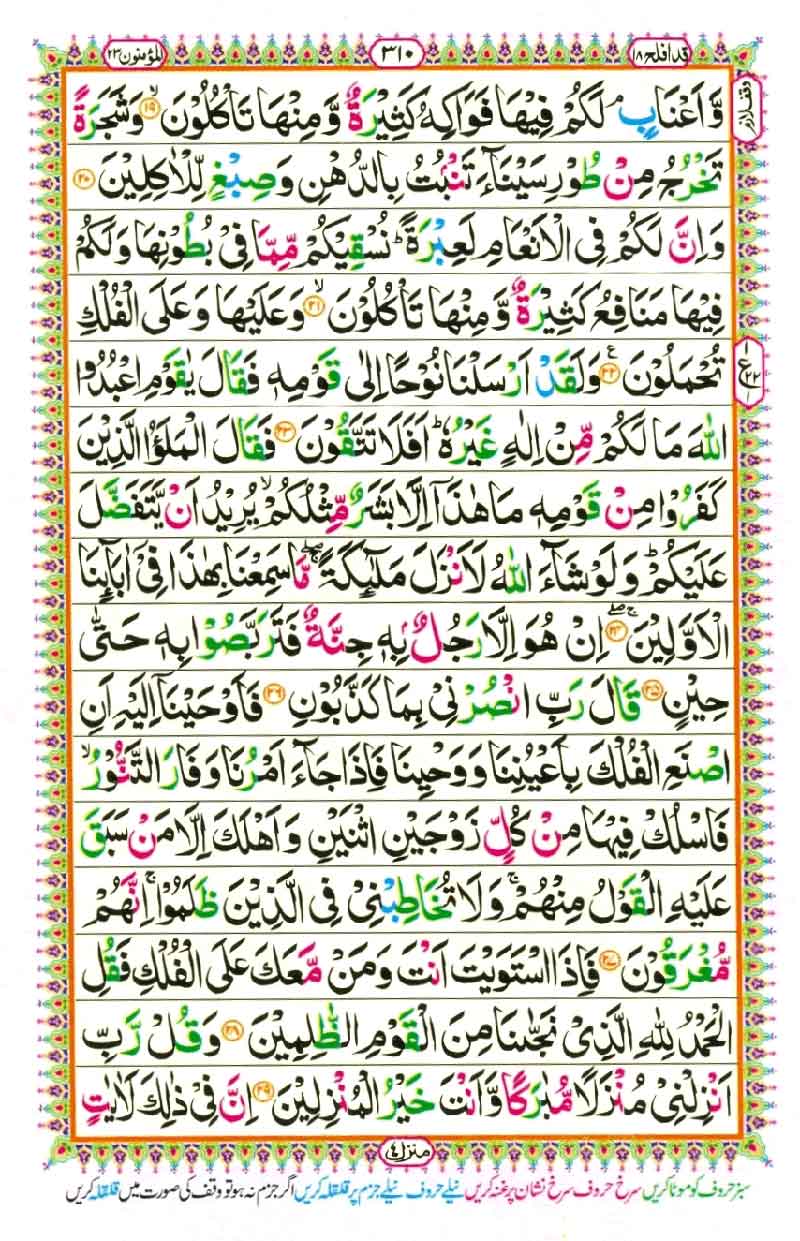 قد افلح ١٨
٣١٠
المؤمنون ٢٣
وقف لازم
وَّاَعْنَابٍ ۘ لَكُمْ فِيْهَا فَوَاكِهُ كَثِيْرَةٌ وَّمِنْهَا تَاْكُلُوْنَ ۙ﴿۱۹﴾ وَشَجَرَةً
تَخْرُجُ مِنْ طُوْرِ سَيْنَآءَ تَنْۢبُتُ بِالدُّهْنِ وَصِبْغٍ لِّلْاٰكِلِيْنَ ﴿۲۰﴾
وَاِنَّ لَكُمْ فِى الْاَنْعَامِ لَعِبْرَةً ؕ نُسْقِيْكُمْ مِّمَّا فِىْ بُطُوْنِهَا وَلَكُمْ
فِيْهَا مَنَافِعُ كَثِيْرَةٌ وَّمِنْهَا تَاْكُلُوْنَ ۙ﴿۲۱﴾ وَعَلَيْهَا وَعَلَى الْفُلْكِ
تُحْمَلُوْنَ ﴿۲۲﴾ ع وَلَقَدْ اَرْسَلْنَا نُوْحًا اِلٰى قَوْمِهٖ فَقَالَ يٰقَوْمِ اعْبُدُوا
اللّٰهَ مَا لَكُمْ مِّنْ اِلٰهٍ غَيْرُهٗ ؕ اَفَلَا تَتَّقُوْنَ ﴿۲۳﴾ فَقَالَ الْمَلَؤُا الَّذِيْنَ
كَفَرُوْا مِنْ قَوْمِهٖ مَا هٰذَاۤ اِلَّا بَشَرٌ مِّثْلُكُمْ ۙ يُرِيْدُ اَنْ يَّتَفَضَّلَ
عَلَيْكُمْ ؕ وَلَوْ شَآءَ اللّٰهُ لَاَنْزَلَ مَلٰٓئِكَةً ۖۚ مَّا سَمِعْنَا بِهٰذَا فِىْۤ اٰبَآئِنَا
الْاَوَّلِيْنَ ۚ﴿۲۴﴾ اِنْ هُوَ اِلَّا رَجُلٌۢ بِهٖ جِنَّةٌ فَتَرَبَّصُوْا بِهٖ حَتّٰى
حِيْنٍ ﴿۲۵﴾ قَالَ رَبِّ انْصُرْنِىْ بِمَا كَذَّبُوْنِ ﴿۲۶﴾ فَاَوْحَيْنَاۤ اِلَيْهِ اَنِ
اصْنَعِ الْفُلْكَ بِاَعْيُنِنَا وَوَحْيِنَا فَاِذَا جَآءَ اَمْرُنَا وَفَارَ التَّنُّوْرُ ۙ
فَاسْلُكْ فِيْهَا مِنْ كُلٍّ زَوْجَيْنِ اثْنَيْنِ وَاَهْلَكَ اِلَّا مَنْ سَبَقَ
عَلَيْهِ الْقَوْلُ مِنْهُمْ ۚ وَلَا تُخَاطِبْنِىْ فِى الَّذِيْنَ ظَلَمُوْا ۚ اِنَّهُمْ
مُّغْرَقُوْنَ ﴿۲۷﴾ فَاِذَا اسْتَوَيْتَ اَنْتَ وَمَنْ مَّعَكَ عَلَى الْفُلْكِ فَقُلِ
الْحَمْدُ لِلّٰهِ الَّذِىْ نَجّٰىنَا مِنَ الْقَوْمِ الظّٰلِمِيْنَ ﴿۲۸﴾ وَقُلْ رَّبِّ
اَنْزِلْنِىْ مُنْزَلًا مُّبٰرَكًا وَّاَنْتَ خَيْرُ الْمُنْزِلِيْنَ ﴿۲۹﴾ اِنَّ فِىْ ذٰلِكَ لَاٰيٰتٍ
١ ع ٢٢ ١
منزل ٤
سبز حروف کو موٹا کریں سرخ حروف سرخ نشان پر غنہ کریں نیلے حروف نیلے جزم پر قلقلہ کریں اگر جزم نہ ہو تو وقف کی صورت میں قلقلہ کریں